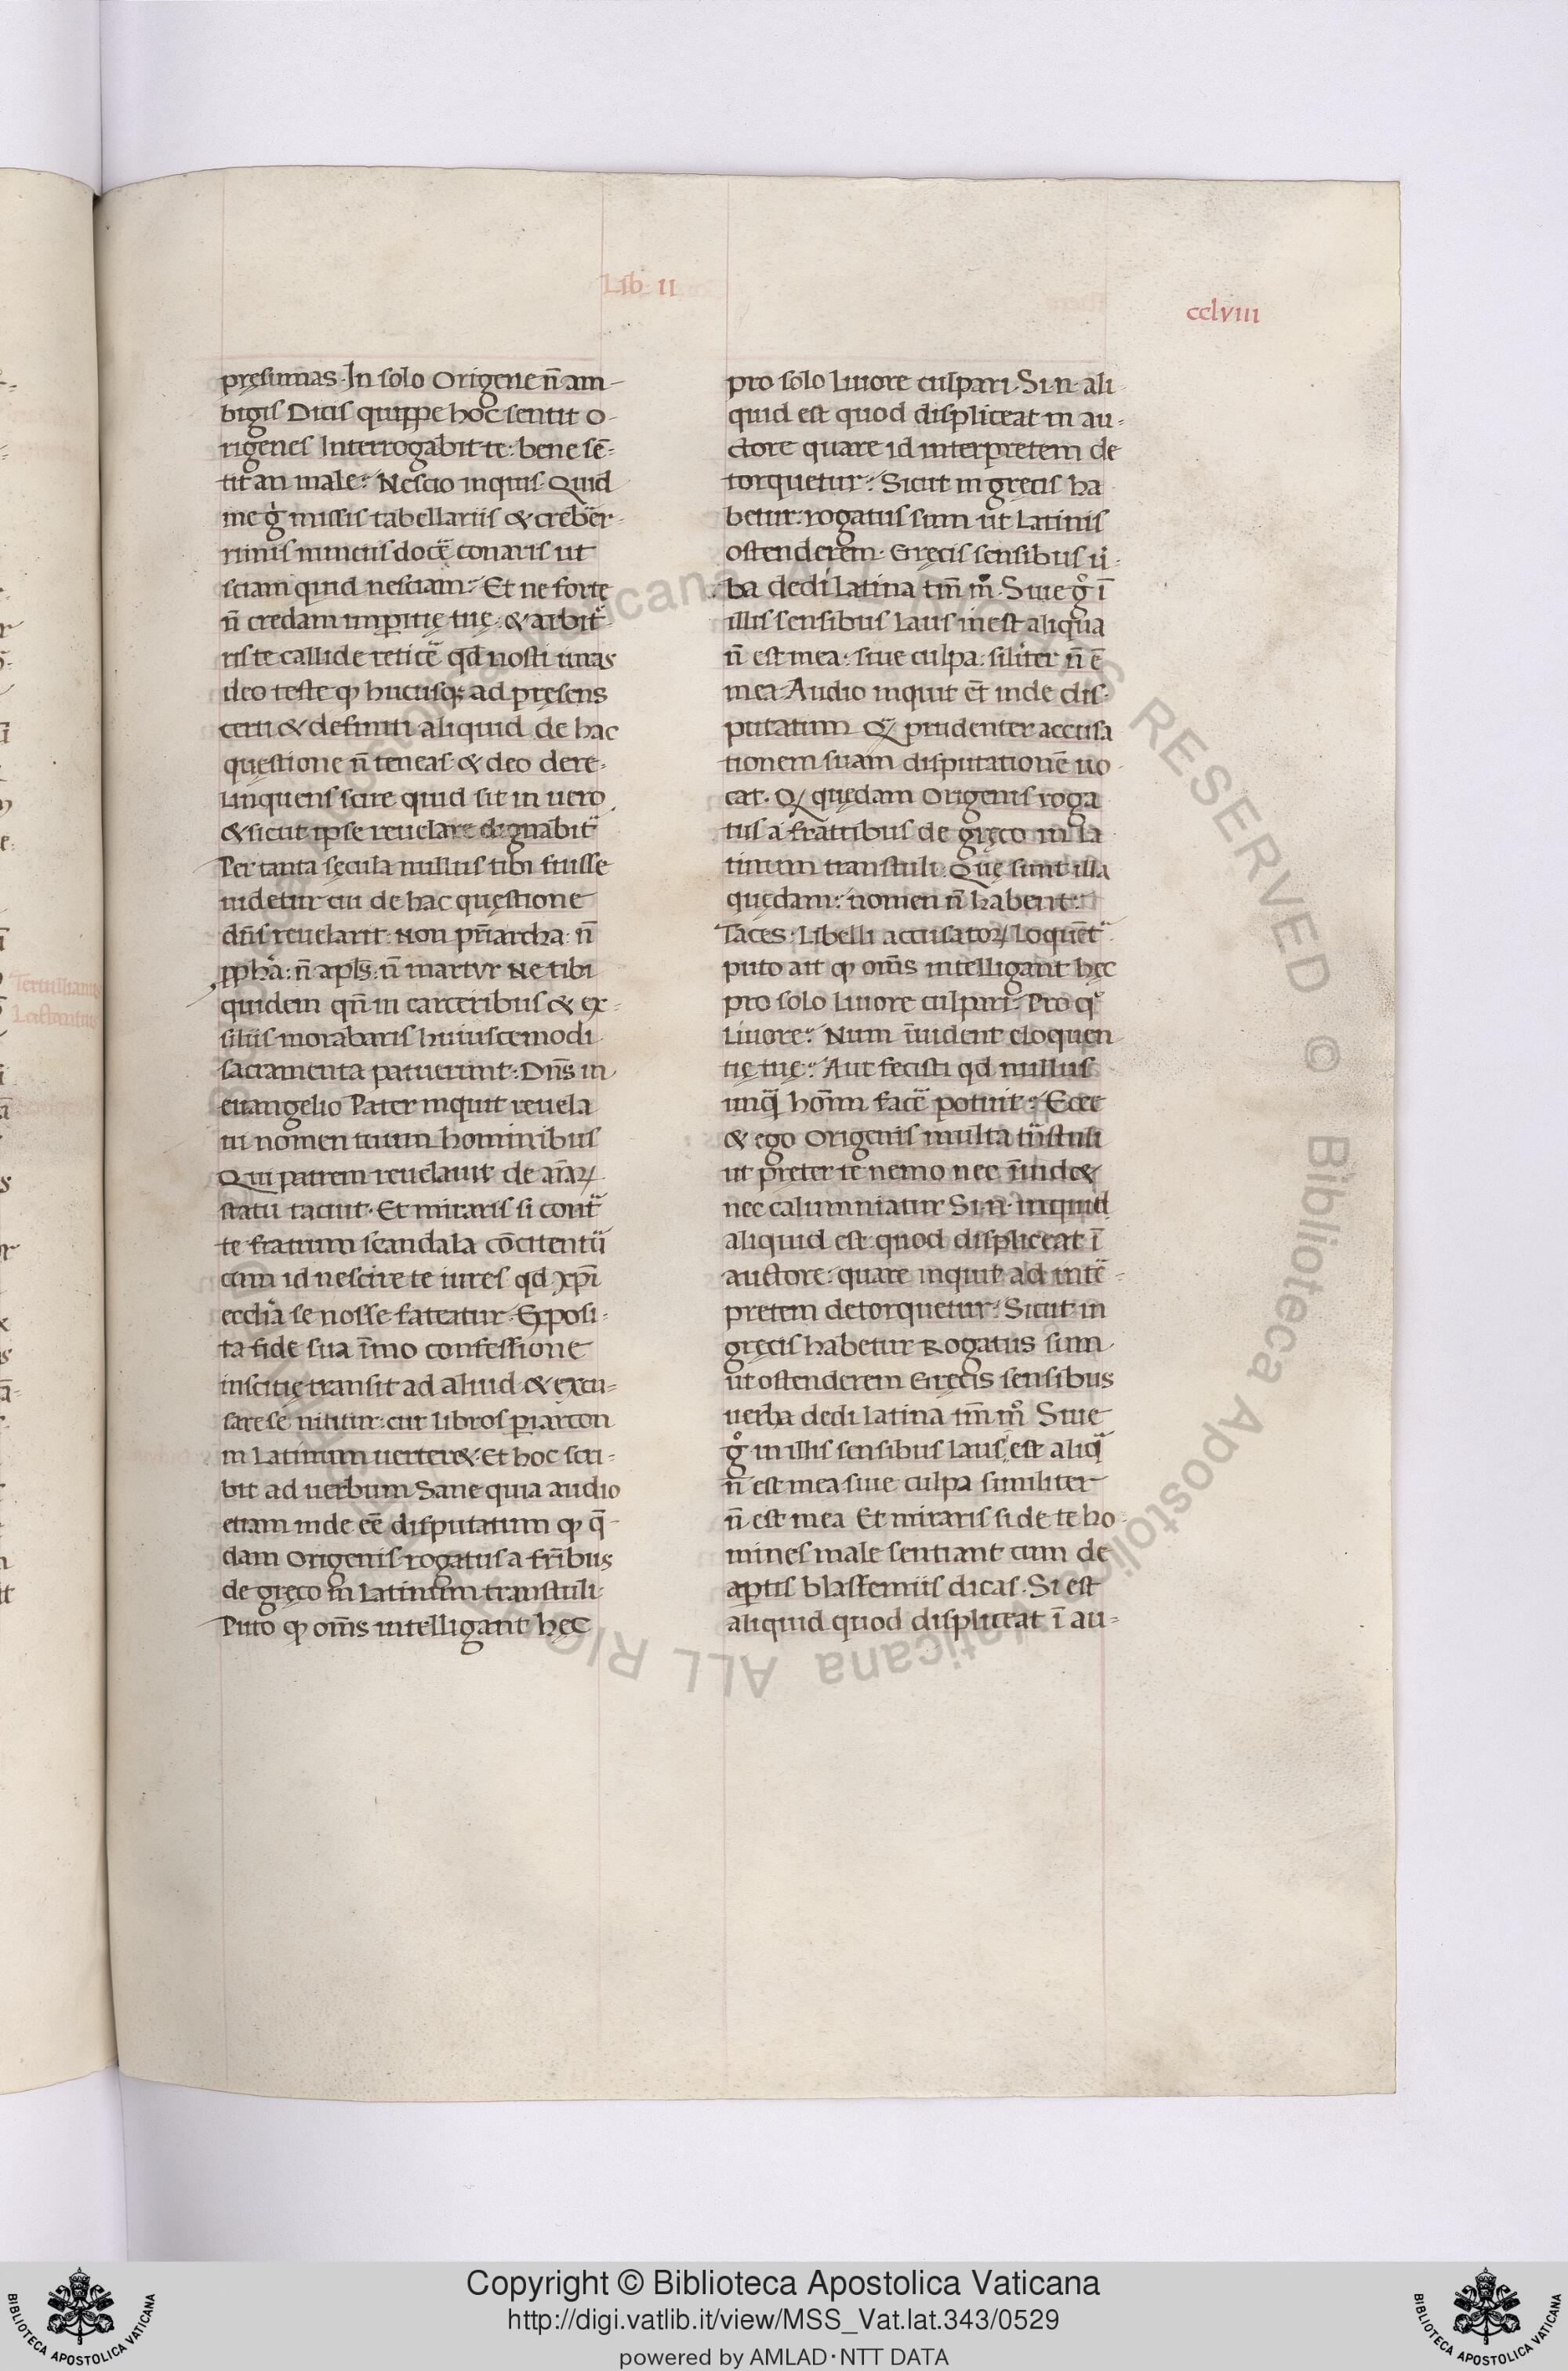 Lib II
cclviii
pręsumas · In solo Origene n̄ am-
bigis Dicis quippe hoc sentit o-
rigenes Interrogabit te: bene sē-
tit an male: Nescio inquis. Quid
me gͥ missis tabellariis & creber-
rimis nunciis docē conaris ut
sciam quid nesciam: Et ne forte
n̄ credam imp̱itię tuę: & arbitͣ-
ris te callide reticē qd̄ nosti iuras
deo teste ꝙ hucusq; ad pręsens
certi & definiti aliquid de hac
quęstione n̄ teneas · & deo dere-
linquens scire quid sit in uero
& sicut ipse reuelare dignabitͣ
Per tanta sęcula nullus tibi fuisse
uidetur cui de hac quęstione
dn̄s reuelarit: Non pr̄iarcha: n̄
ꝓpha: n̄ apls̄: n̄ martyr Ne tibi
quidem qn̄ in carceribus & ex-
siliis morabaris huiuscemodi
sacramenta patuerunt: Dn̄s in
euangelio Pater inquit reuela
ui nomen tuum hominibus
Qui patrem reuelauit de aīaꝝ
statu tacuit · Et miraris si contͣ
te fratrum scandala cōcitentͣ
cum id nescire te iures qd xp̄i
ecclīa se nosse fateatur · Exposi-
ta fide sua īmo confessione
inscitię transit ad aliud · & excu-
sare se nititur: cur libros p̱iarcon
in Latinum uerter& · Et hoc scri-
bit ad uerbum Sane quia audio
etiam inde eē disputatum ꝙ q̄-
dam Origenis rogatus a fr̄ibus
de gręco in Latinum transtuli
Puto ꝙ om̄s intelligant hęc
pro solo liuore culpari · Si · n · ali-
quid est quod displiceat in au-
ctore quare id interpretem de
torquetur: Sicut in gręcis ha
betur: rogatus sum ut Latinis
ostenderem · Gręcis sensibus uͥ-
ba dedi Latina tm̄ mͦ · Siue gͦ ī
illis sensibus Laus inest aliqua
n̄ est mea: siue culpa: siliter n̄ ē
mea Audio inquit et̄ inde dis-
putatum Qͣ prudenter accusa
tionem suam disputationē uo-
cat · Qꝫ quędam Origenis roga
tus a fratribus de gręco in la
tinum transtuli · Quę sunt illa
quędam: nomen n̄ habent:
Taces · Libelli accusatoꝝ loquentͣ
puto ait ꝙ om̄s intelligant hęc
pro solo liuore culpari: Pro qͦ
Liuore: Num īuident eloquen
tię tuę: Aut fecisti qd nullus
unqͣ hom̄ facē potuit: Ecce
& ego Origenis multa tͣnstuli
ut preter te nemo nec īuid&
nec calumniatur Si n · inquid
aliquid est quod displiceat ī
auctore: quare inquit ad intē-
pretem detorquetur: Sicut in
gręcis habetur Rogatus sum
ut ostenderem Gręcis sensibus
uerba dedi Latina tm̄ mͦ Siue
gͦ in illis sensibus laus est aliqͣ
n̄ est mea siue culpa similiter
n̄ est mea Et miraris si de te ho-
mines male sentiant cum de
ap̱tis blasfemiis dicas · Si est
aliquid quod displiceat ī au-
Tertullianus
Lactantius
Copyright © Biblioteca Apostolica Vaticana
http://digi.vatlib.it/view/MSS_Vat.lat.343/0529
powered by AMLAD·NTT DATA
BIBLIOTECA APOSTOLICA VATICANA
BIBLIOTECA APOSTOLICA VATICANA